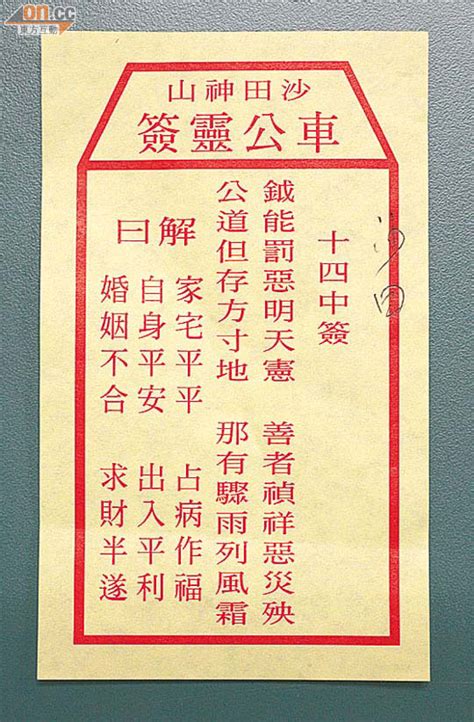 on.cc
東方互動
沙田神山
車公靈簽
沙田
十四中簽
鉞能罰惡明天憲 善者禎祥惡災殃
公道但存方寸地 那有驟雨列風霜
解曰
家宅平平 占病作福
自身平安 出入平利
婚姻不合 求財半遂